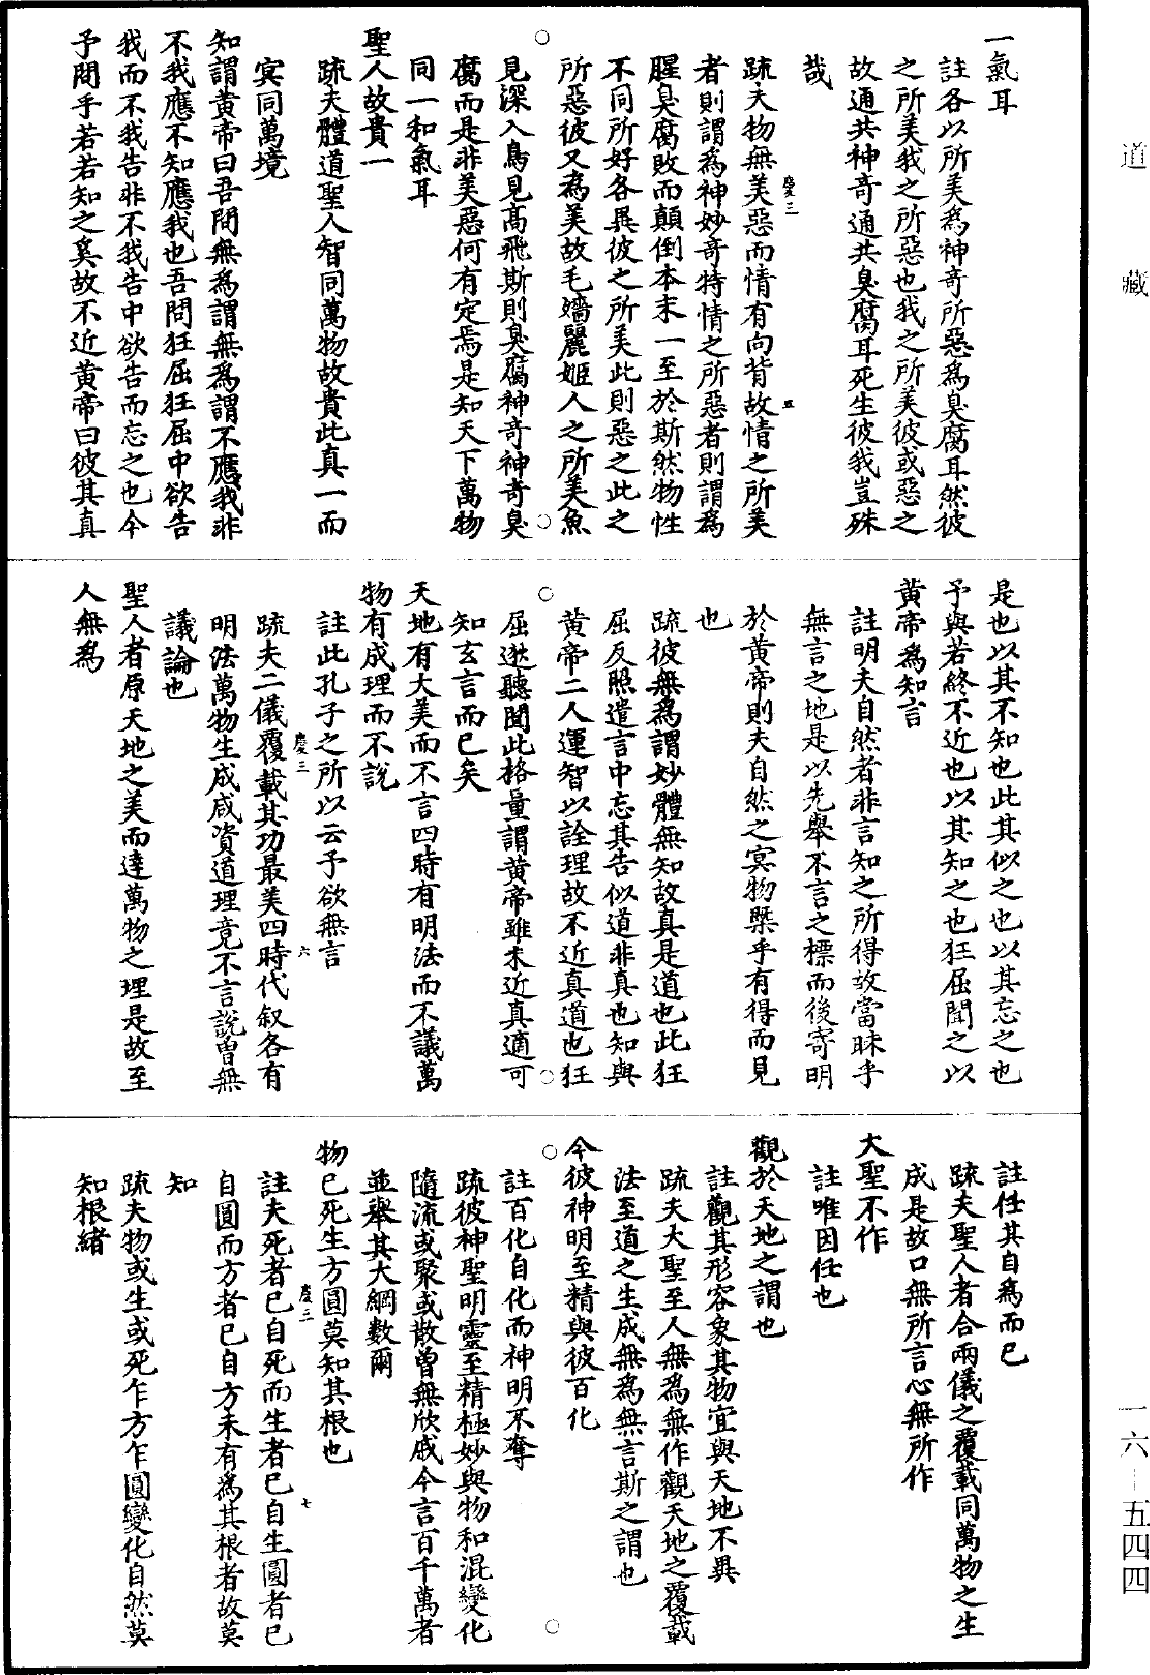 道藏
一氣耳
註各以所美為神奇所惡為臭腐耳然彼
之所美我之所惡也我之所美彼或惡之
故通共神奇通共臭腐耳死生彼我豈殊
哉
疏夫物無美惡而情有向背故情之所美
者則謂為神妙奇特情之所惡者則謂為
腥臭腐敗而顛倒本末一至於斯然物性
不同所好各異彼之所美此則惡之此之
所惡彼又為美故毛嬙麗姬人之所美魚
見深入鳥見高飛斯則臭腐神奇神奇臭
腐而是非美惡何有定焉是知天下萬物
同一和氣耳
聖人故貴一
疏夫體道聖人智同萬物故貴此真一而
冥同萬境
知謂黃帝曰吾問無為謂無為謂不應我非
不我應不知應我也吾問狂屈狂屈中欲告
我而不我告非不我告中欲告而忘之也今
予問乎若若知之奚故不近黃帝曰彼其真
慶三
五
是也以其不知也此其似之也以其忘之也
予與若終不近也以其知之也狂屈聞之以
黃帝為知言
註明夫自然者非言知之所得故當昧乎
無言之地是以先舉不言之標而後寄明
於黃帝則夫自然之冥物槩乎有得而見
也
疏彼無為謂妙體無知故真是道也此狂
屈反照遣言中忘其告似道非真也知與
黃帝二人運智以詮理故不近真道也狂
屈逖聽聞此格量謂黃帝雖未近真適可
知玄言而已矣
天地有大美而不言四時有明法而不議萬
物有成理而不說
註此孔子之所以云予欲無言
疏夫二儀覆載其功最美四時代叙各有
明法萬物生成咸資道理竟不言說曾無
議論也
聖人者原天地之美而達萬物之理是故至
人無為
慶三
六
註任其自為而已
疏夫聖人者合兩儀之覆載同萬物之生
成是故口無所言心無所作
大聖不作
註唯因任也
觀於天地之謂也
註觀其形容象其物宜與天地不異
疏夫大聖至人無為無作觀天地之覆載
法至道之生成無為無言斯之謂也
今彼神明至精與彼百化
註百化自化而神明不奪
疏彼神聖明靈至精極妙與物和混變化
隨流或聚或散曾無欣戚今言百千萬者
並舉其大綱數爾
物已死生方圓莫知其根也
註夫死者已自死而生者已自生圓者已
自圓而方者已自方未有為其根者故莫
知
疏夫物或生或死乍方乍圓變化自然莫
知根緒
慶三
七
一六—五四四